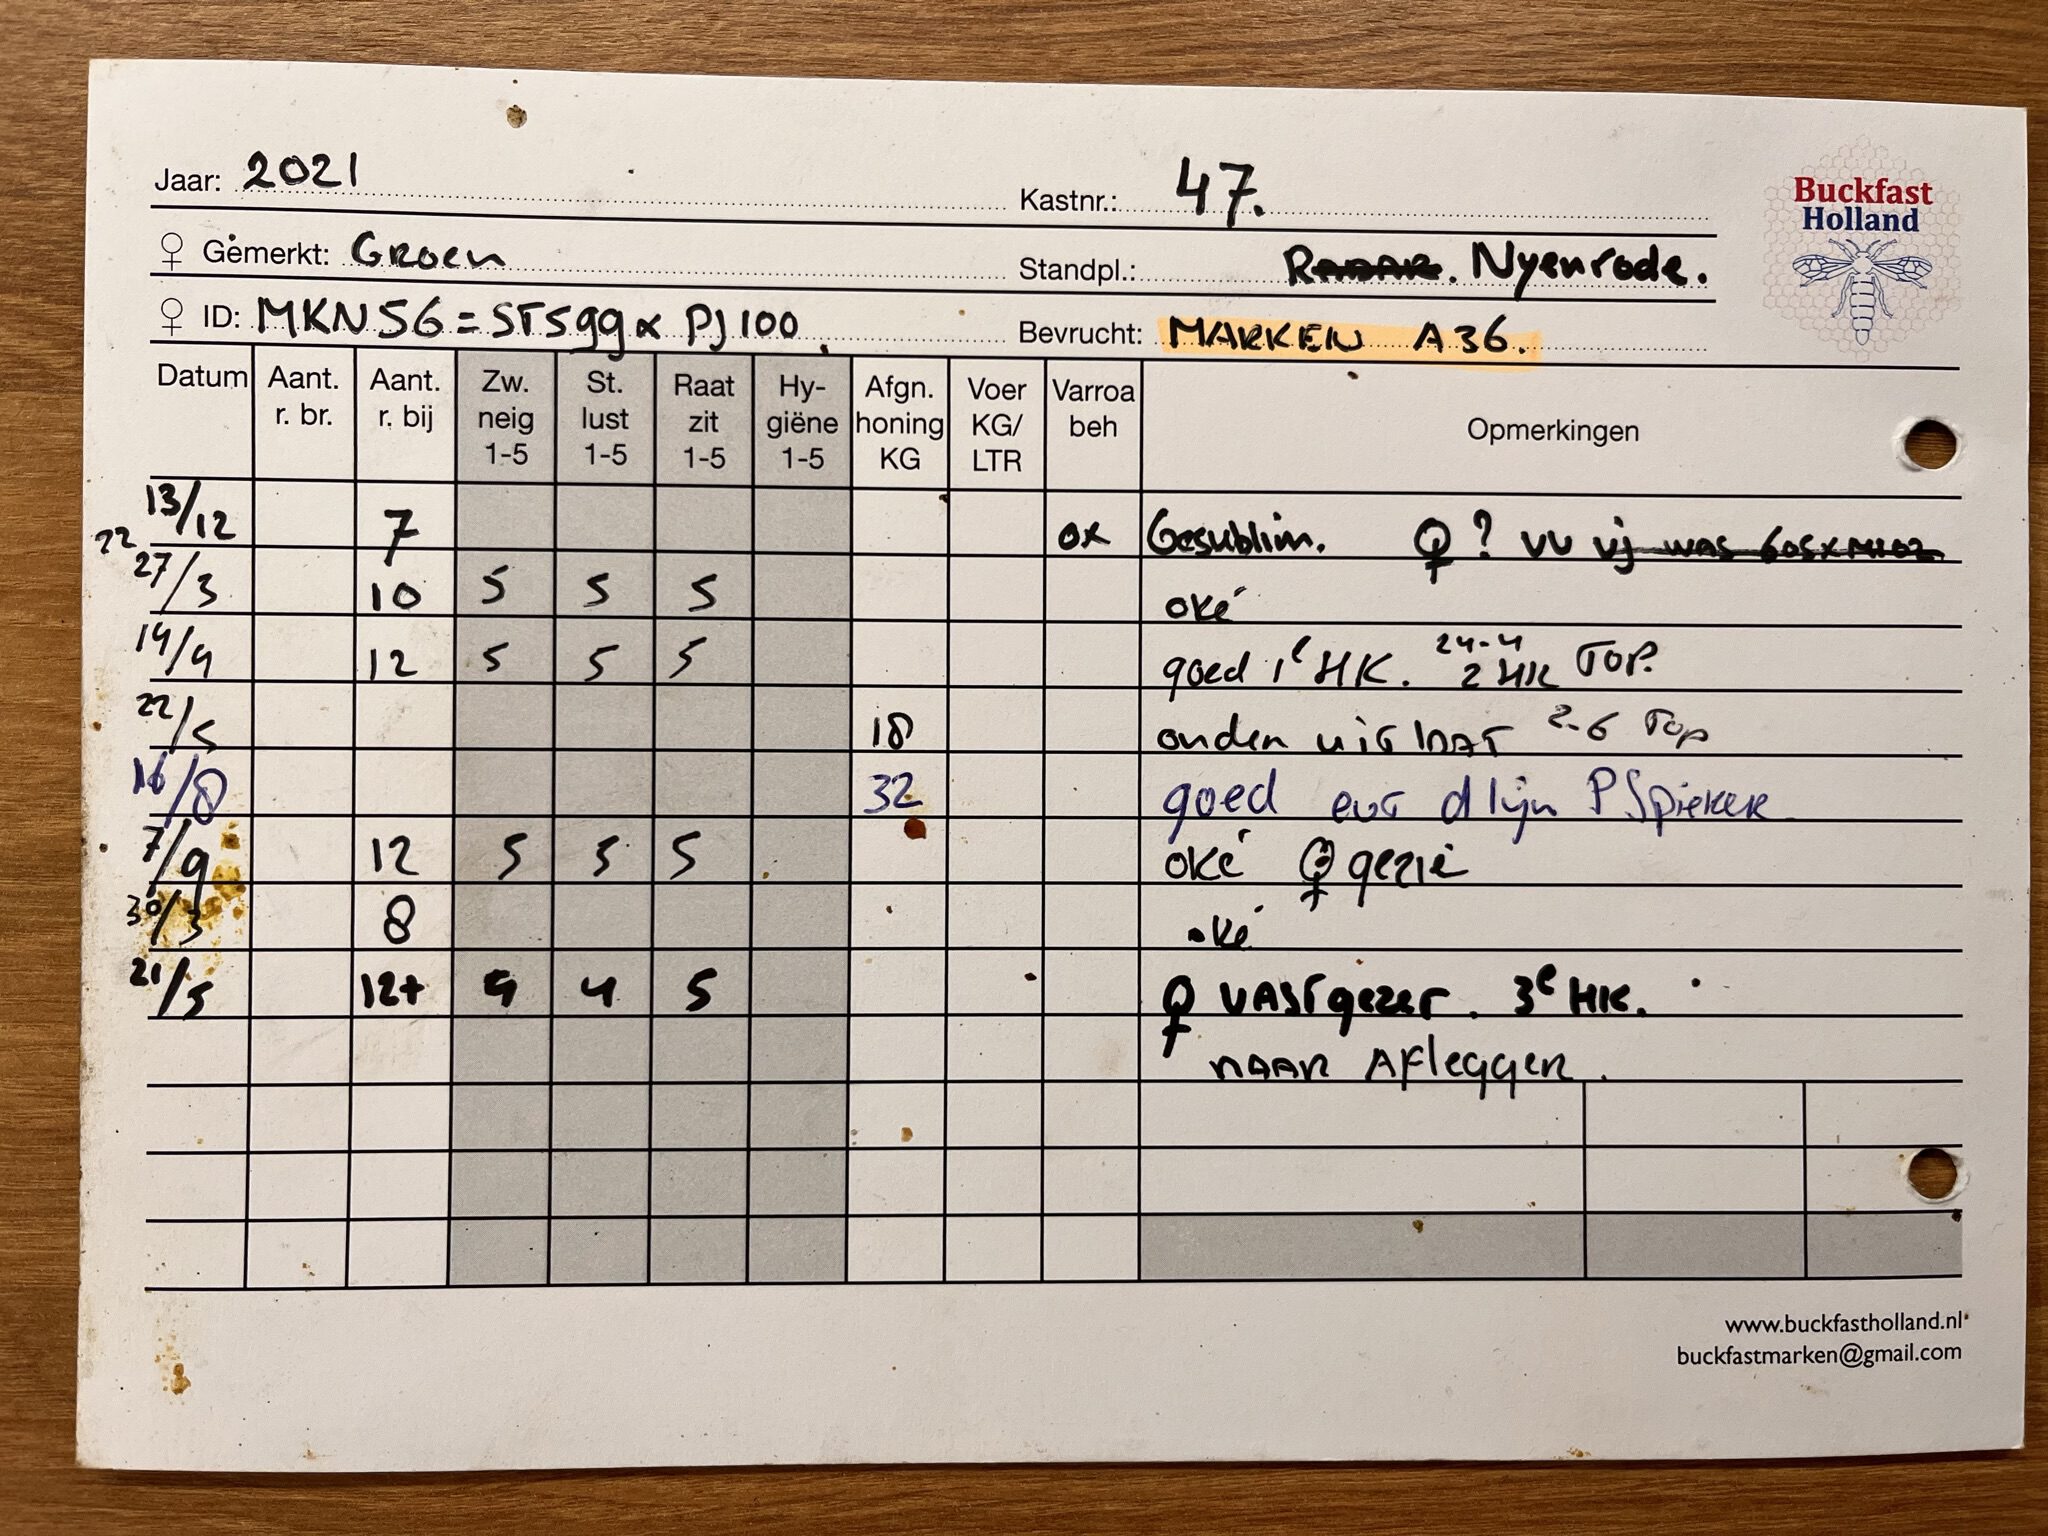 Jaar: 2021 Kastnr.: 47. Buckfast Holland
♀ Gemerkt: Groen Standpl.: Nyenrode.
♀ ID: MKN56 = ST599 x PJ100 Bevrucht: MARKEN A36.
Datum Aant. r. br. Aant. r. bij Zw. neig 1-5 St. lust 1-5 Raat zit 1-5 Hy-giëne 1-5 Afgn. honing KG Voer KG/LTR Varroa beh Opmerkingen
13/12 7 ox Gesublim. ♀ ? vv vj was
22 27/3 10 5 5 5 oké
14/4 12 5 5 5 goed 1e HK. 24-4 2 HK TOP.
22/5 18 onder uit 2-6 Top
16/8 32 goed evt d lijn P Spieker
7/9 12 5 5 5 oké ♀ gezie
30/3 8 oké
21/5 12+ 4 4 5 ♀ vastgezet. 3e HK.
naar Aflegger.
www.buckfastholland.nl
buckfastmarken@gmail.com